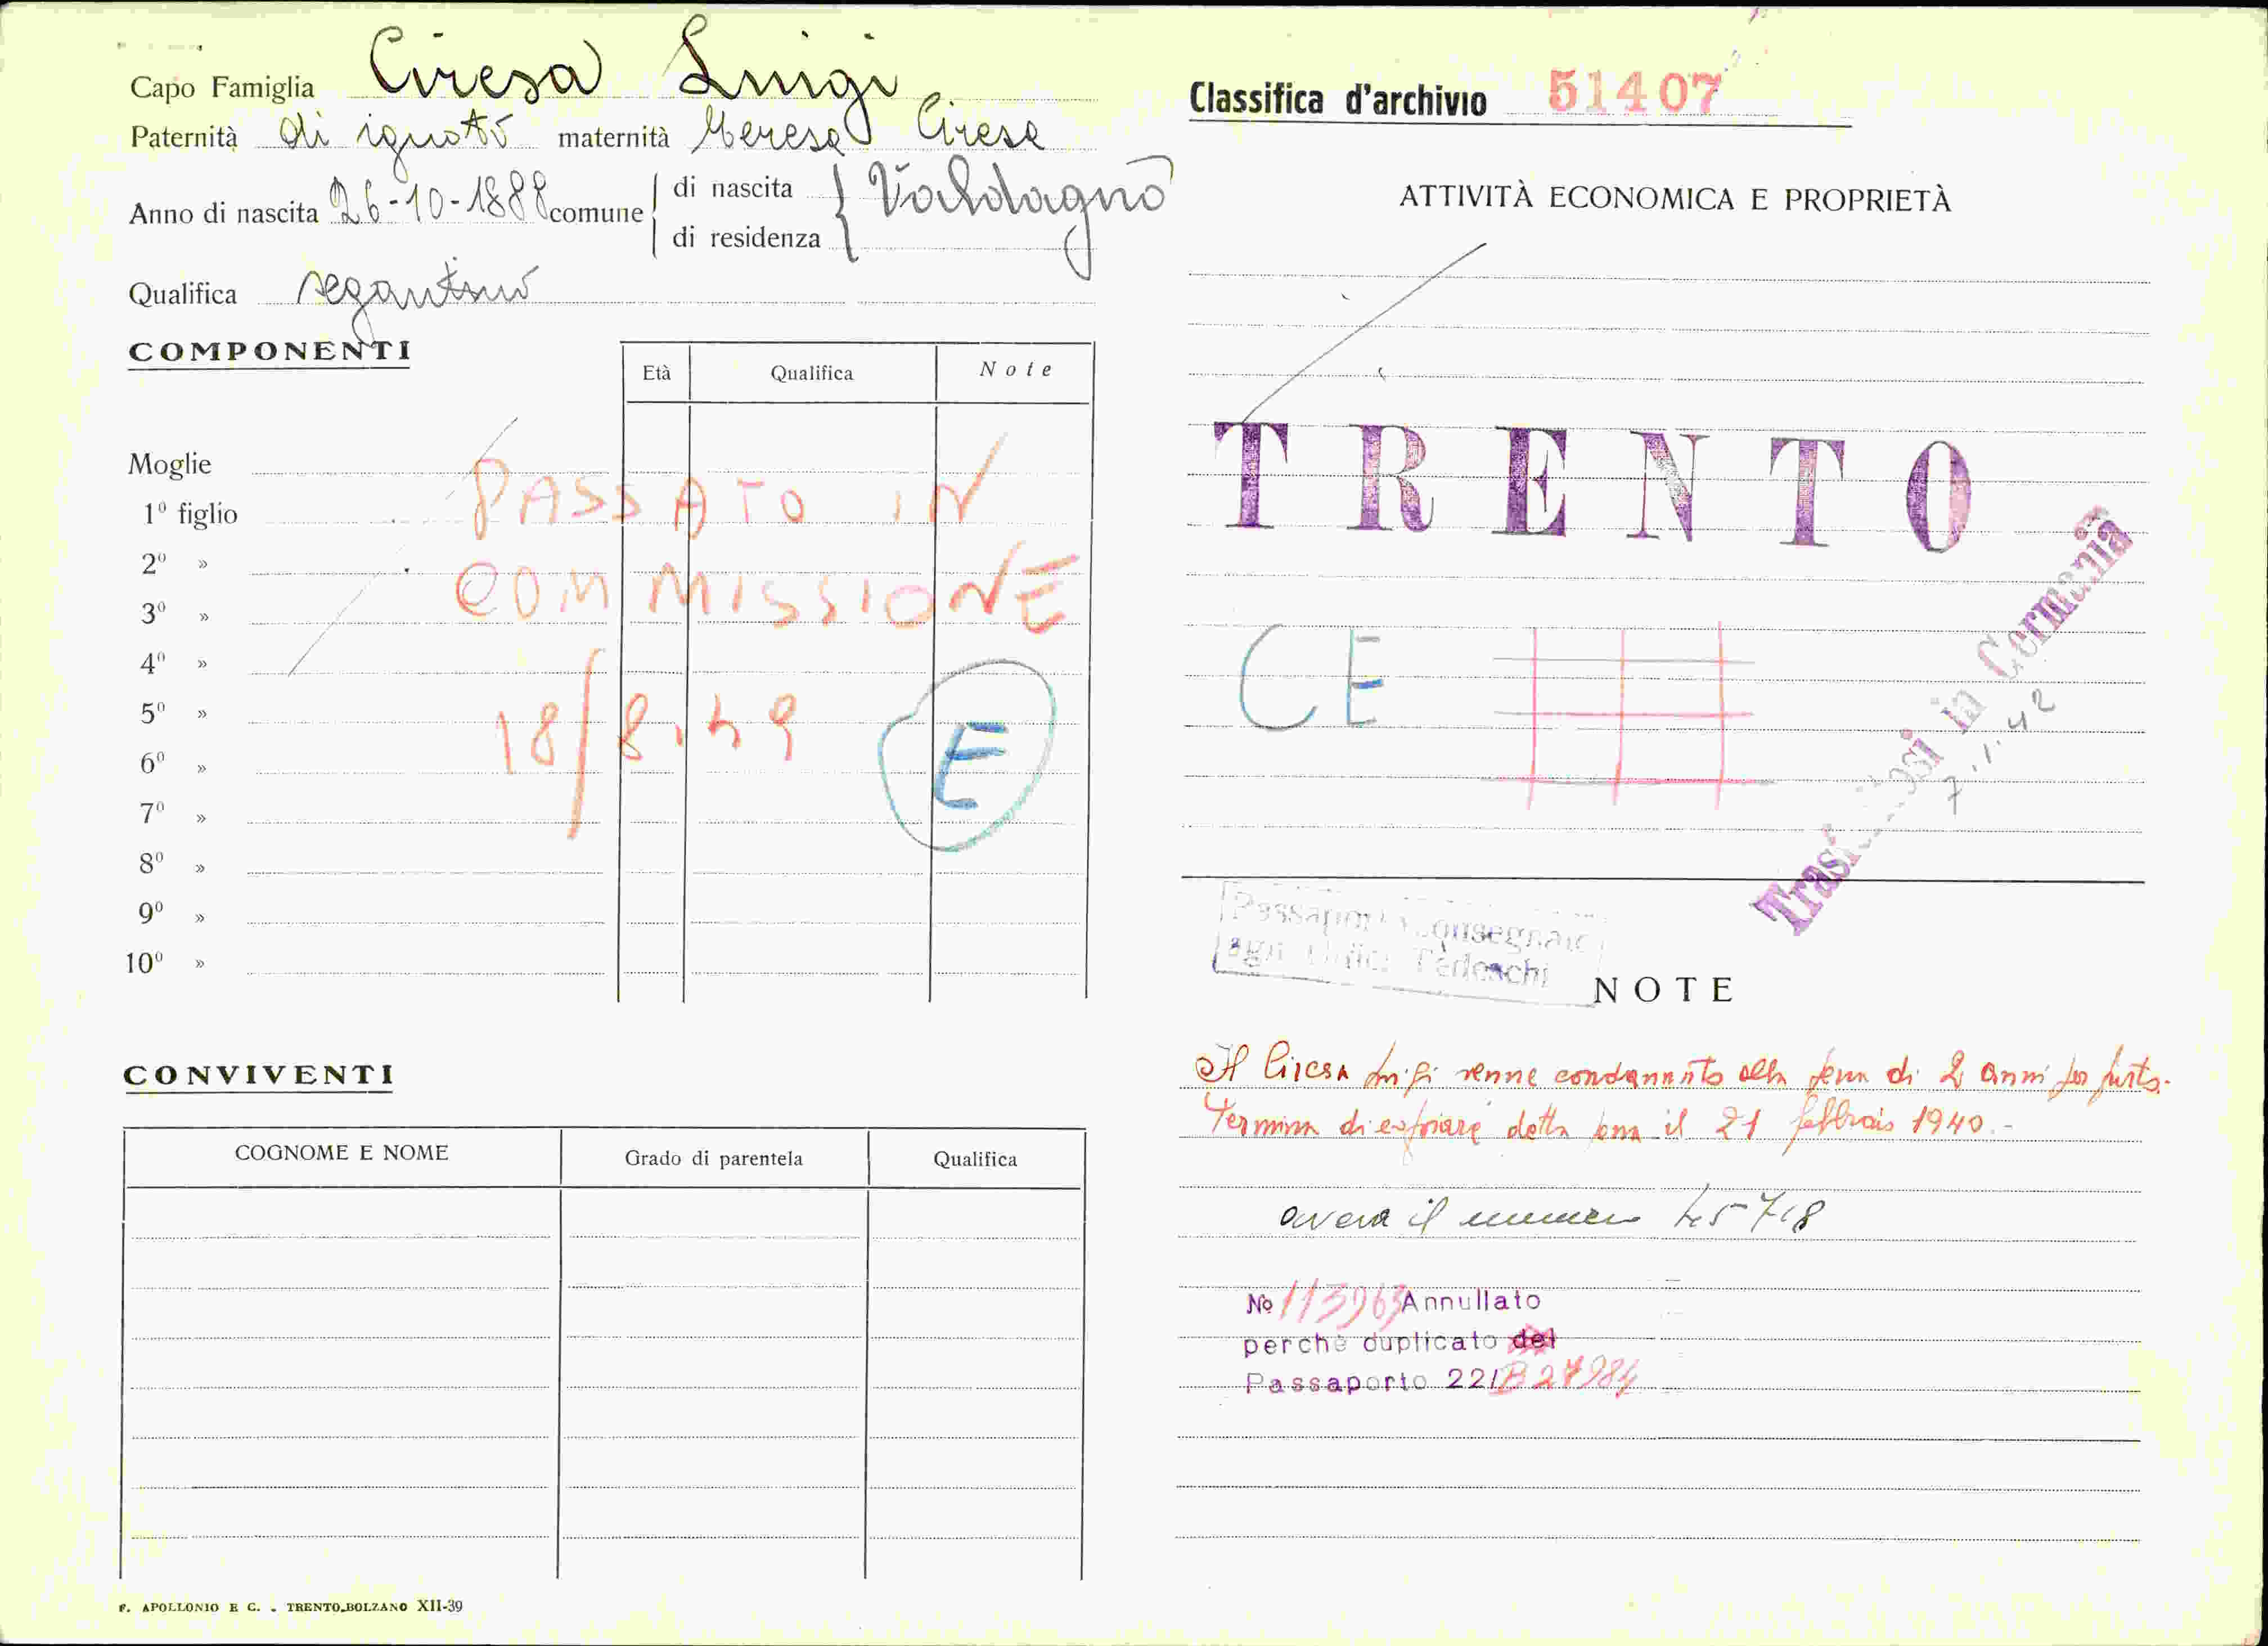 Capo Famiglia Ciresa Luigi
Paternità di ignoto maternità Teresa Ciresa
Anno di nascita 26-10-1888 comune di nascita Valdagno
di residenza
Qualifica segantino
COMPONENTI
Età Qualifica Note
Moglie
1º figlio
2º »
3º »
4º »
5º »
6º »
7º »
8º »
9º »
10º »
PASSATO IN
COMMISSIONE
18/8.49
E
CONVIVENTI
COGNOME E NOME Grado di parentela Qualifica
F. APOLLONIO E C. - TRENTO-BOLZANO XII-39
Classifica d'archivio 51407
ATTIVITÀ ECONOMICA E PROPRIETÀ
TRENTO
CE
Trasferitosi in Germania
7.1.42
Passaporto consegnato
agli Uffici Tedeschi
NOTE
Il Ciresa Luigi venne condannato alla pena di 2 anni per furto.
Termina di espiare detta pena il 21 febbraio 1940.-
aveva il numero 45718
No 113963 Annullato
perchè duplicato del
Passaporto 221/B 27984